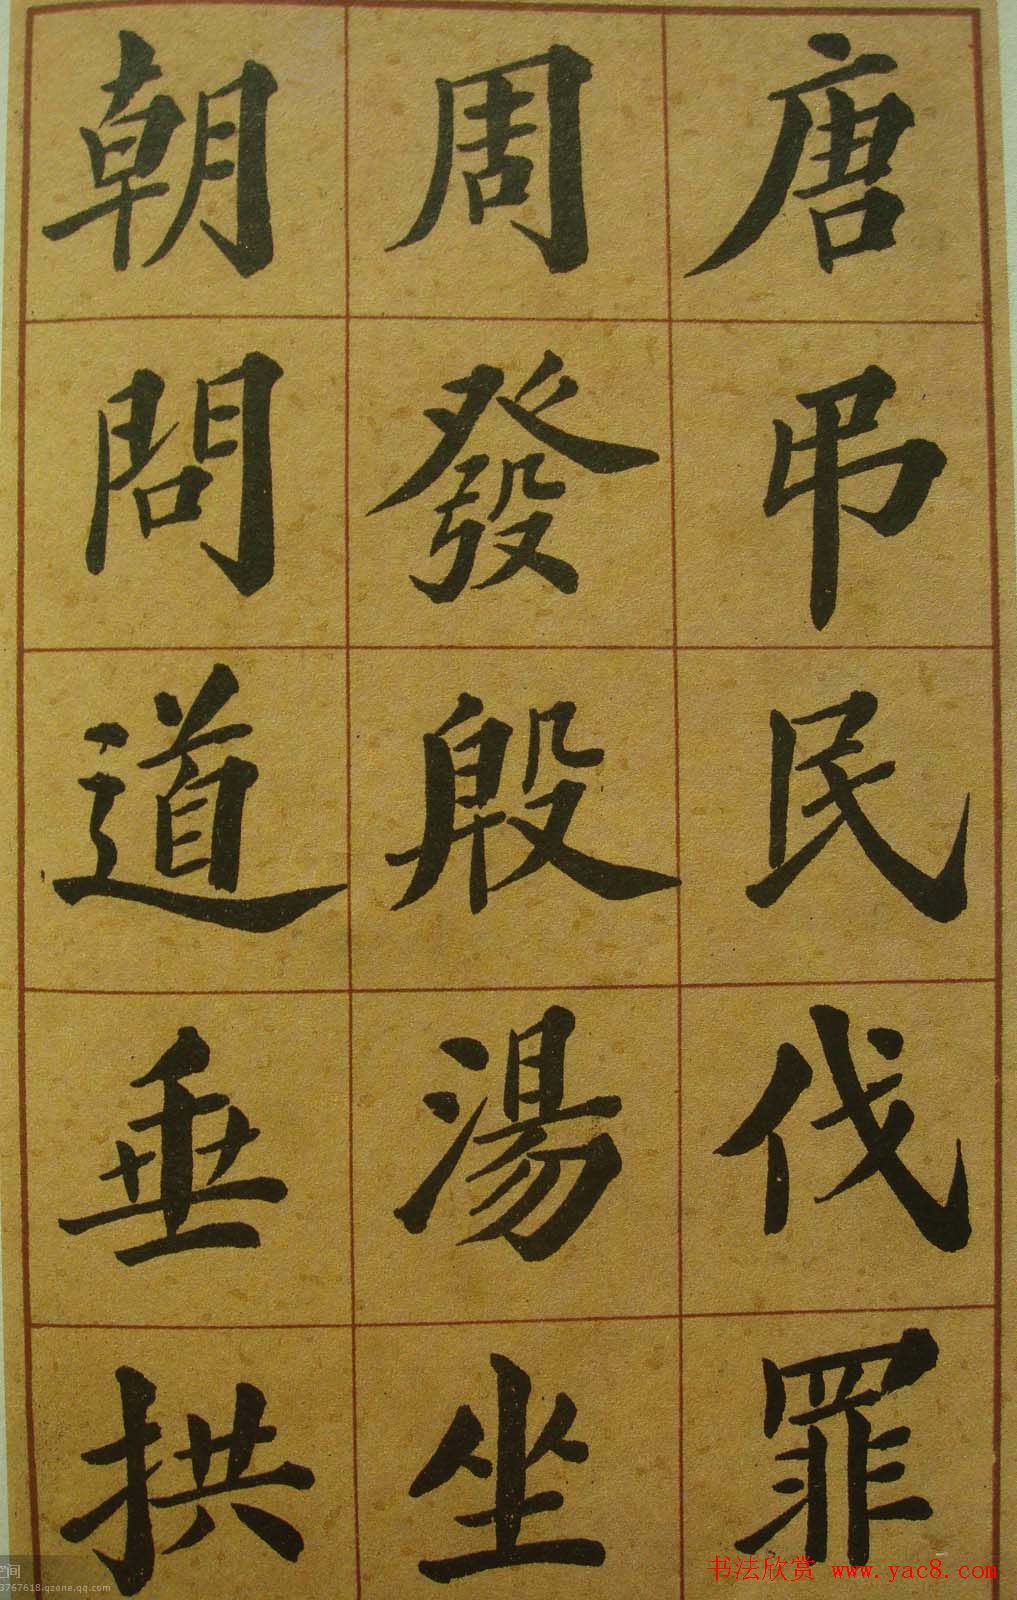 唐弔民伐罪
周發殷湯坐
朝問道垂拱
书法欣赏 www.yac8.com
空间
3767618.qzone.qq.com